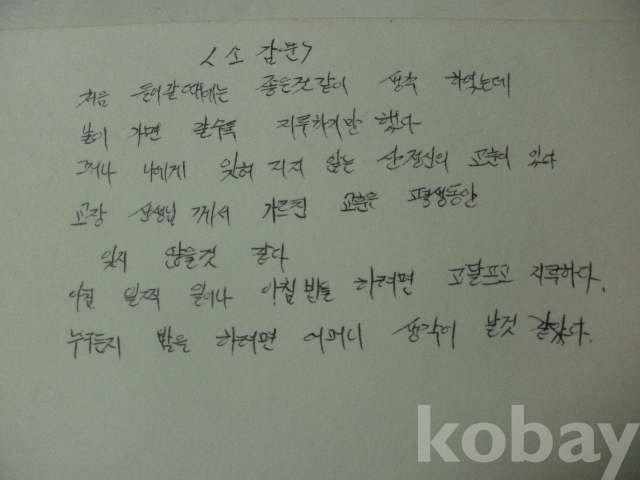 < 소 감문 >
처음 들어갈때에는 좋은것같이 생각 하였는데
날이 가면 갈수록 지루하기만 했다
그러나 나에게 잊혀 지지 않는 산정신의 교훈이 있다
교장 선생님 께서 가르친 교훈은 평생동안
잊지 않을것 같다
아침 일찍 일어나 아침밥을 하려면 고달프고 지루하다.
누구든지 밥을 하려면 어머니 생각이 날것 같았다.
kobay